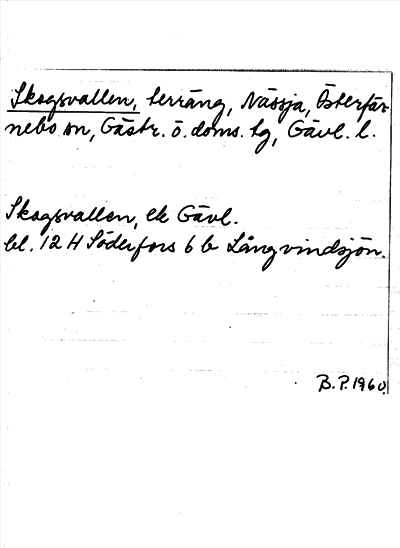 Skogsvallen, terräng, Nässja, Österfär-
nebo sn, Gästr. ö. doms. tg, Gävl. l.
Skogsvallen, ek Gävl.
bl. 12 H Söderfors 6 b Långvindsjön.
B.P. 1960.